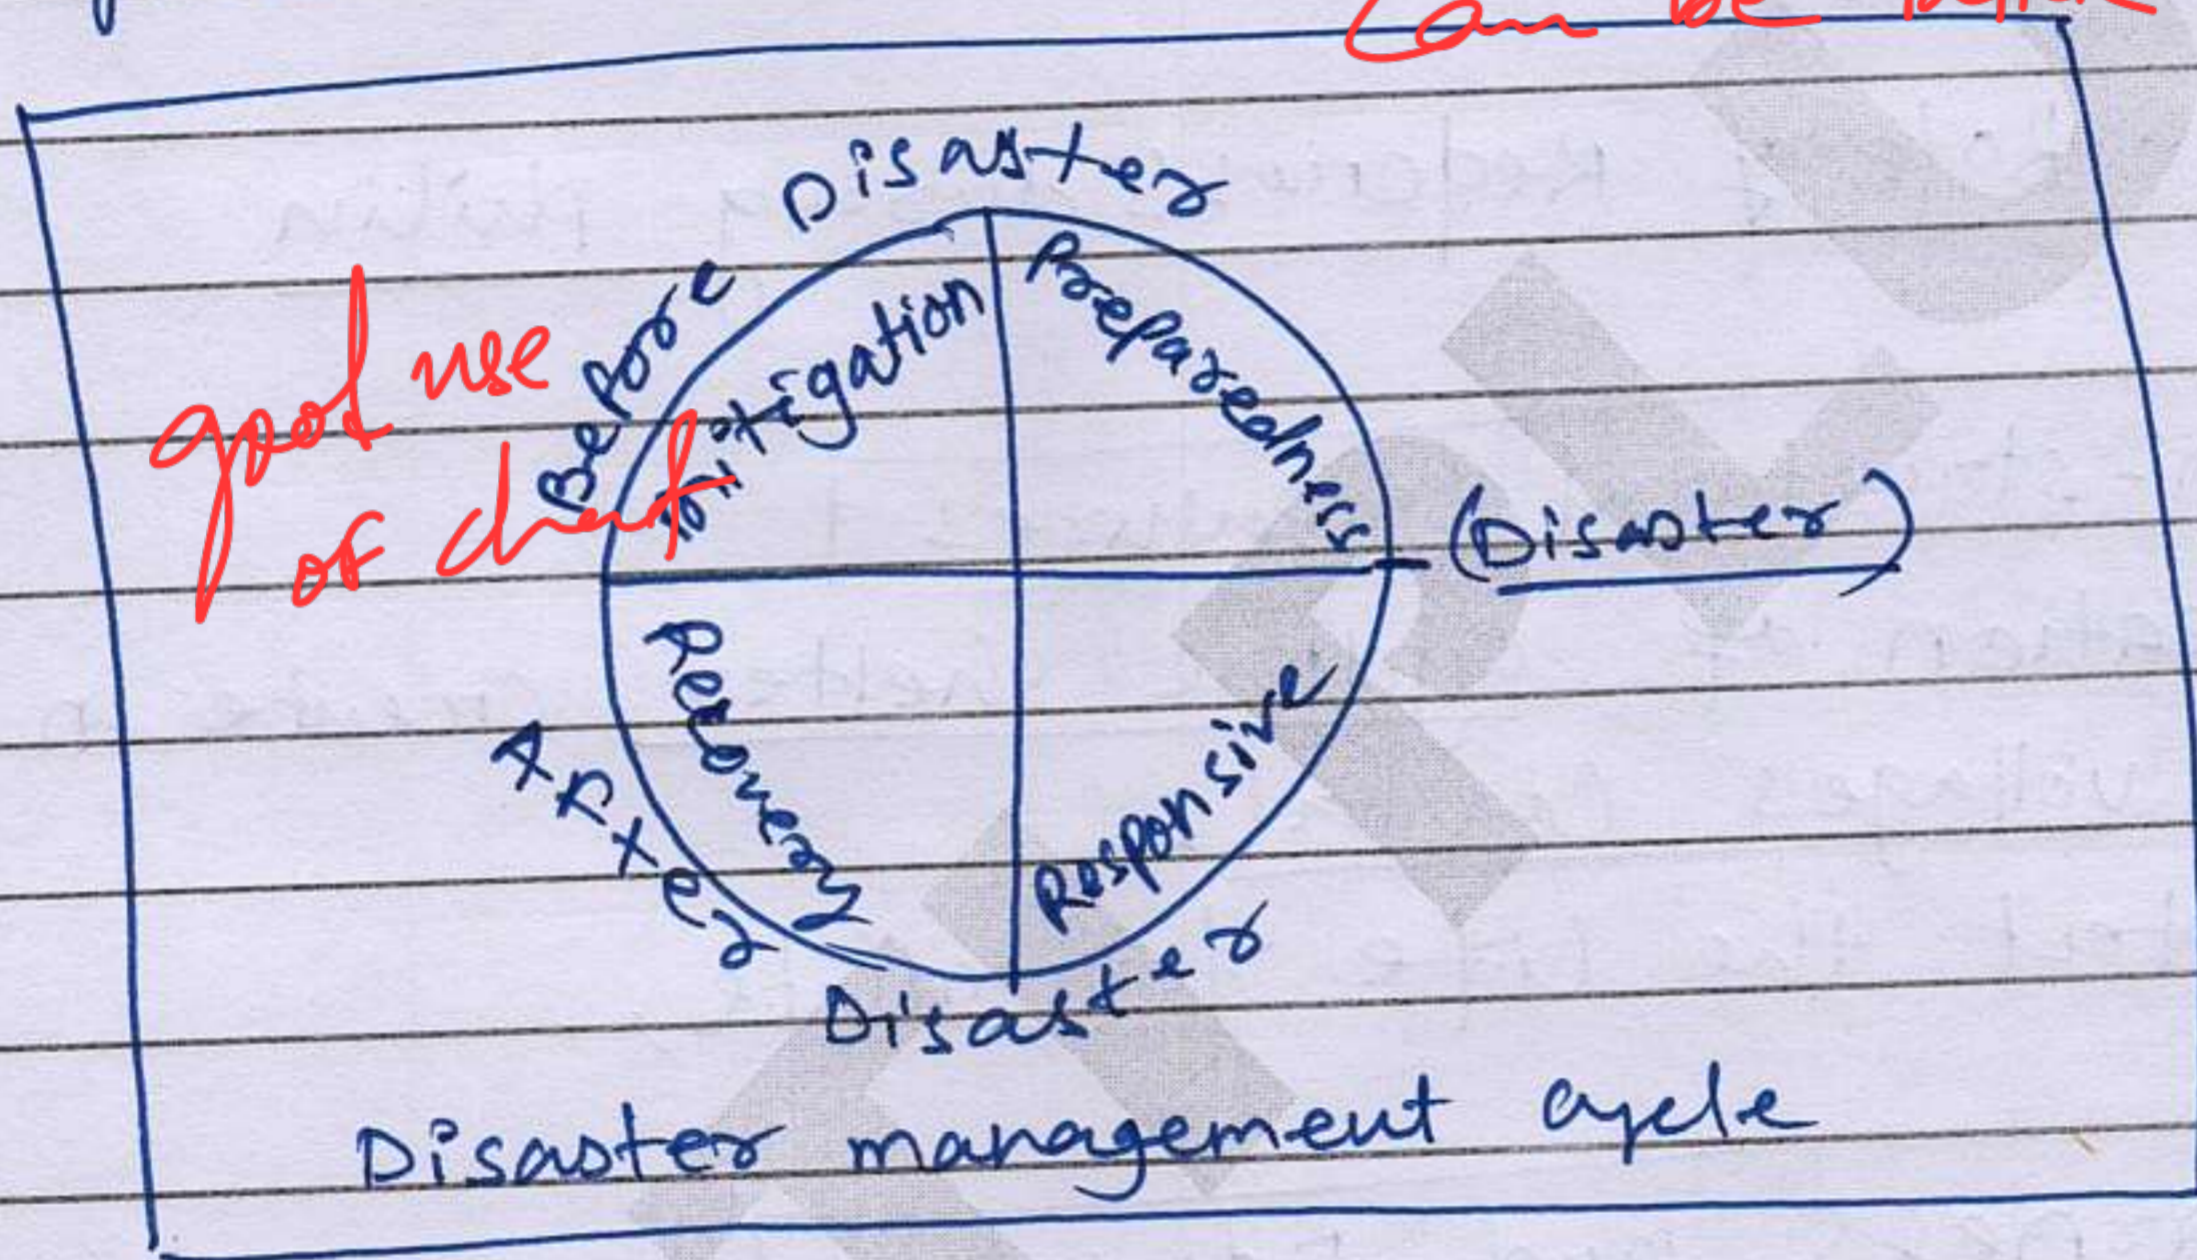 can be
Before Disaster
good use
of chart
Mitigation
Preparedness
(Disaster)
Recovery
Responsive
After Disaster
Disaster management cycle